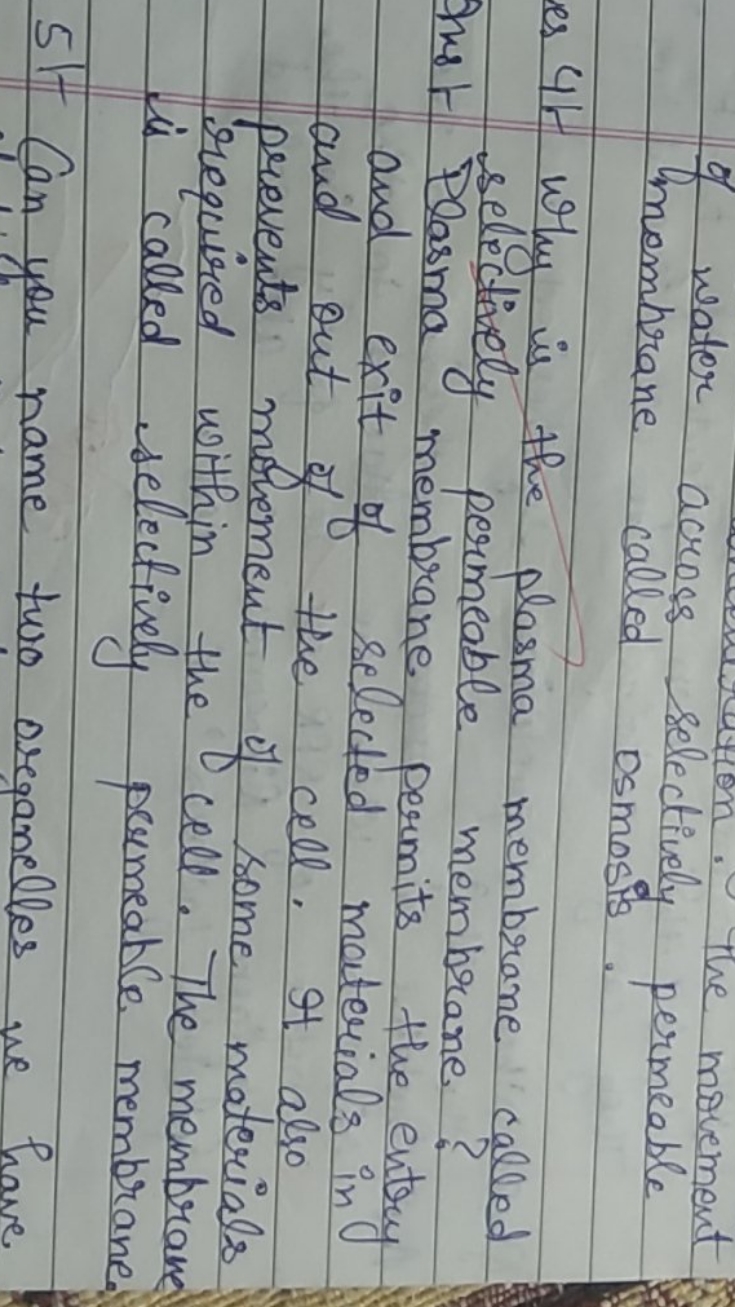 The movement
of water across selectively permeable
membrane called osmosis.
es 4 why is the plasma membrane called
selectively permeable membrane?
Ans Plasma membrane permits the entry
and exit of selected materials in
and out of the cell. It also
prevents movement of some materials
required within the cell. The membrane
is called selectively permeable membrane.
5 Can you name two oreganelles we have